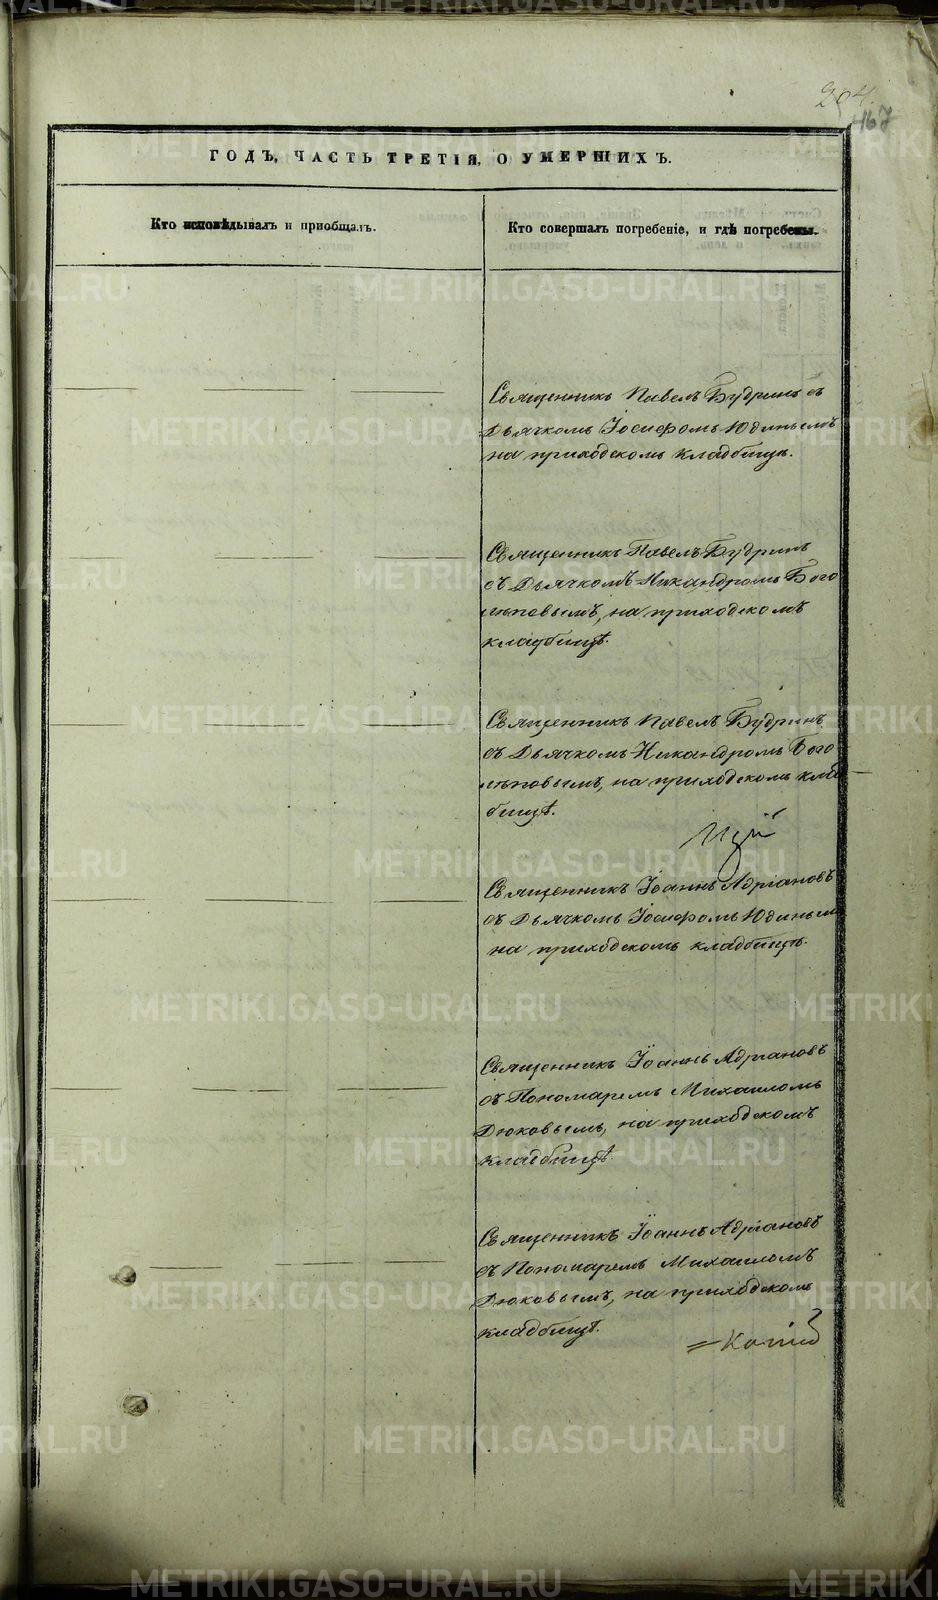 204.
467
ГОДЪ, ЧАСТЬ ТРЕТІЯ, О УМЕРШИХЪ.
Кто исповѣдывалъ и пріобщалъ.
Кто совершалъ погребеніе, и гдѣ погребены.
Священникъ Павелъ Будринъ съ
Дьячкомъ Іосифомъ Юдинымъ
на приходскомъ кладбищѣ.
Священникъ Павелъ Будринъ
съ Дьячкомъ Никандромъ Бого
лѣповымъ, на приходскомъ
кладбищѣ.
Священникъ Павелъ Будринъ
съ Дьячкомъ Никандромъ Бого
лѣповымъ, на приходскомъ клад
бищѣ.
Священникъ Іоаннъ Адріановъ
съ Дьячкомъ Іосифомъ Юдинымъ
на приходскомъ кладбищѣ.
Священникъ Іоаннъ Адріановъ
съ Пономаремъ Михаиломъ
Дюковымъ, на приходскомъ
кладбищѣ.
Священникъ Іоаннъ Адріановъ
съ Пономаремъ Михаиломъ
Дюковымъ, на приходскомъ
кладбищѣ.
METRIKI.GASO-URAL.RU